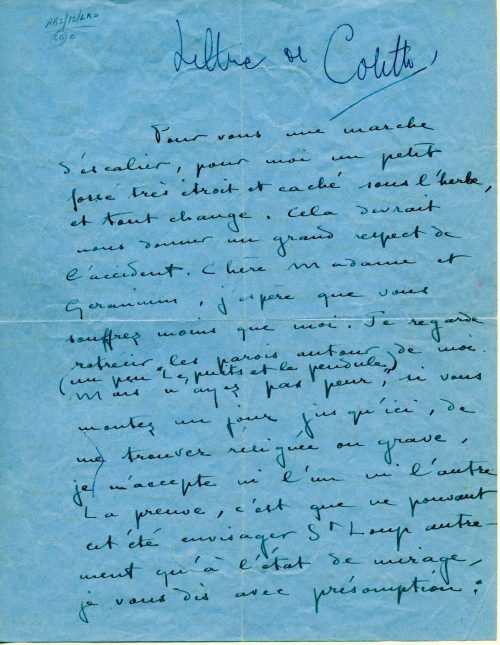 Lettre de Colette
Pour vous une marche
d'escalier, pour moi un petit
fossé très étroit et caché sous l'herbe,
et tout change. Cela devrait
nous donner un grand respect de
l'accident. Chère Madame et
Geranium, j'espère que vous
souffrez moins que moi. Je regarde
retrecir les parois autour de moi.
(un peu "Le puits et le pendule")
Mais n'ayez pas peur, si vous
montez un jour jusqu'ici, de
me trouver résignée ou grave,
je n'accepte ni l'un ni l'autre
La preuve, c'est que ne pouvant
cet été envisager St Loup autre-
ment qu'à l'état de mirage,
je vous dis avec présomption :